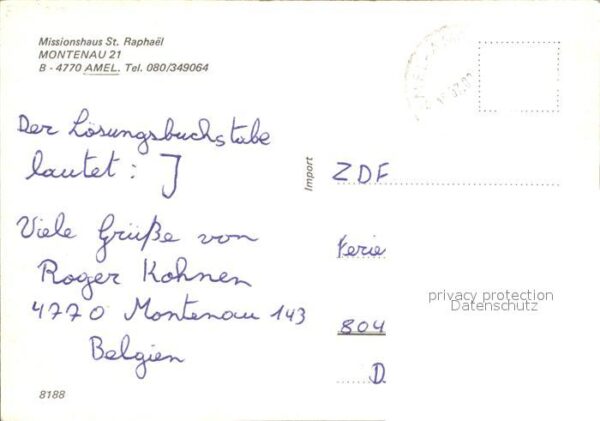 Missionshaus St. Raphaël
MONTENAU 21
B - 4770 AMEL. Tel. 080/349064
Der Lösungsbuchstabe
lautet: J
Viele Grüße von
Roger Kohnen
4770 Montenau 143
Belgien
8188
Import
ZDF
Ferie
804
D
privacy protection
Datenschutz